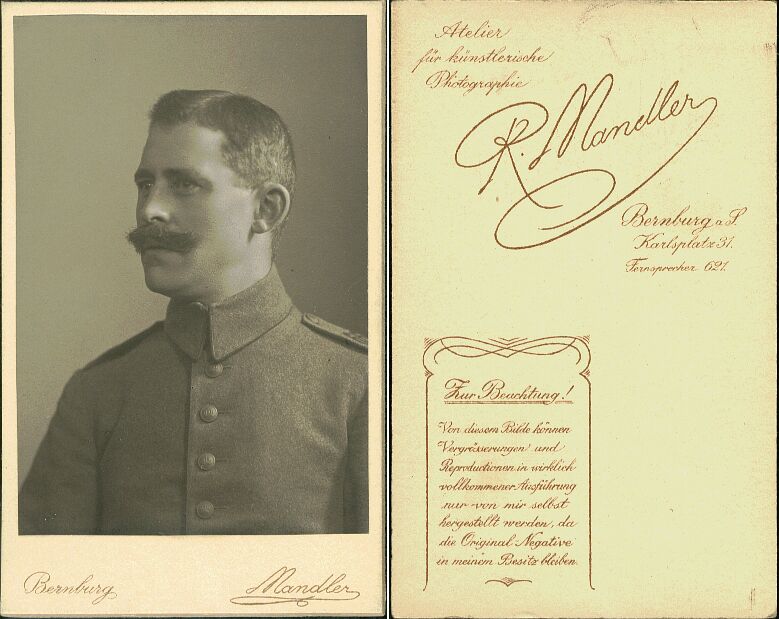 Bernburg
Mandler
Atelier
für künstlerische
Photographie
R. Mandler
Bernburg a. S.
Karlsplatz 31.
Fernsprecher 621.
Zur Beachtung!
Von diesem Bilde können
Vergrösserungen und
Reproductionen in wirklich
vollkommener Ausführung
nur von mir selbst
hergestellt werden, da
die Original-Negative
in meinem Besitz bleiben.